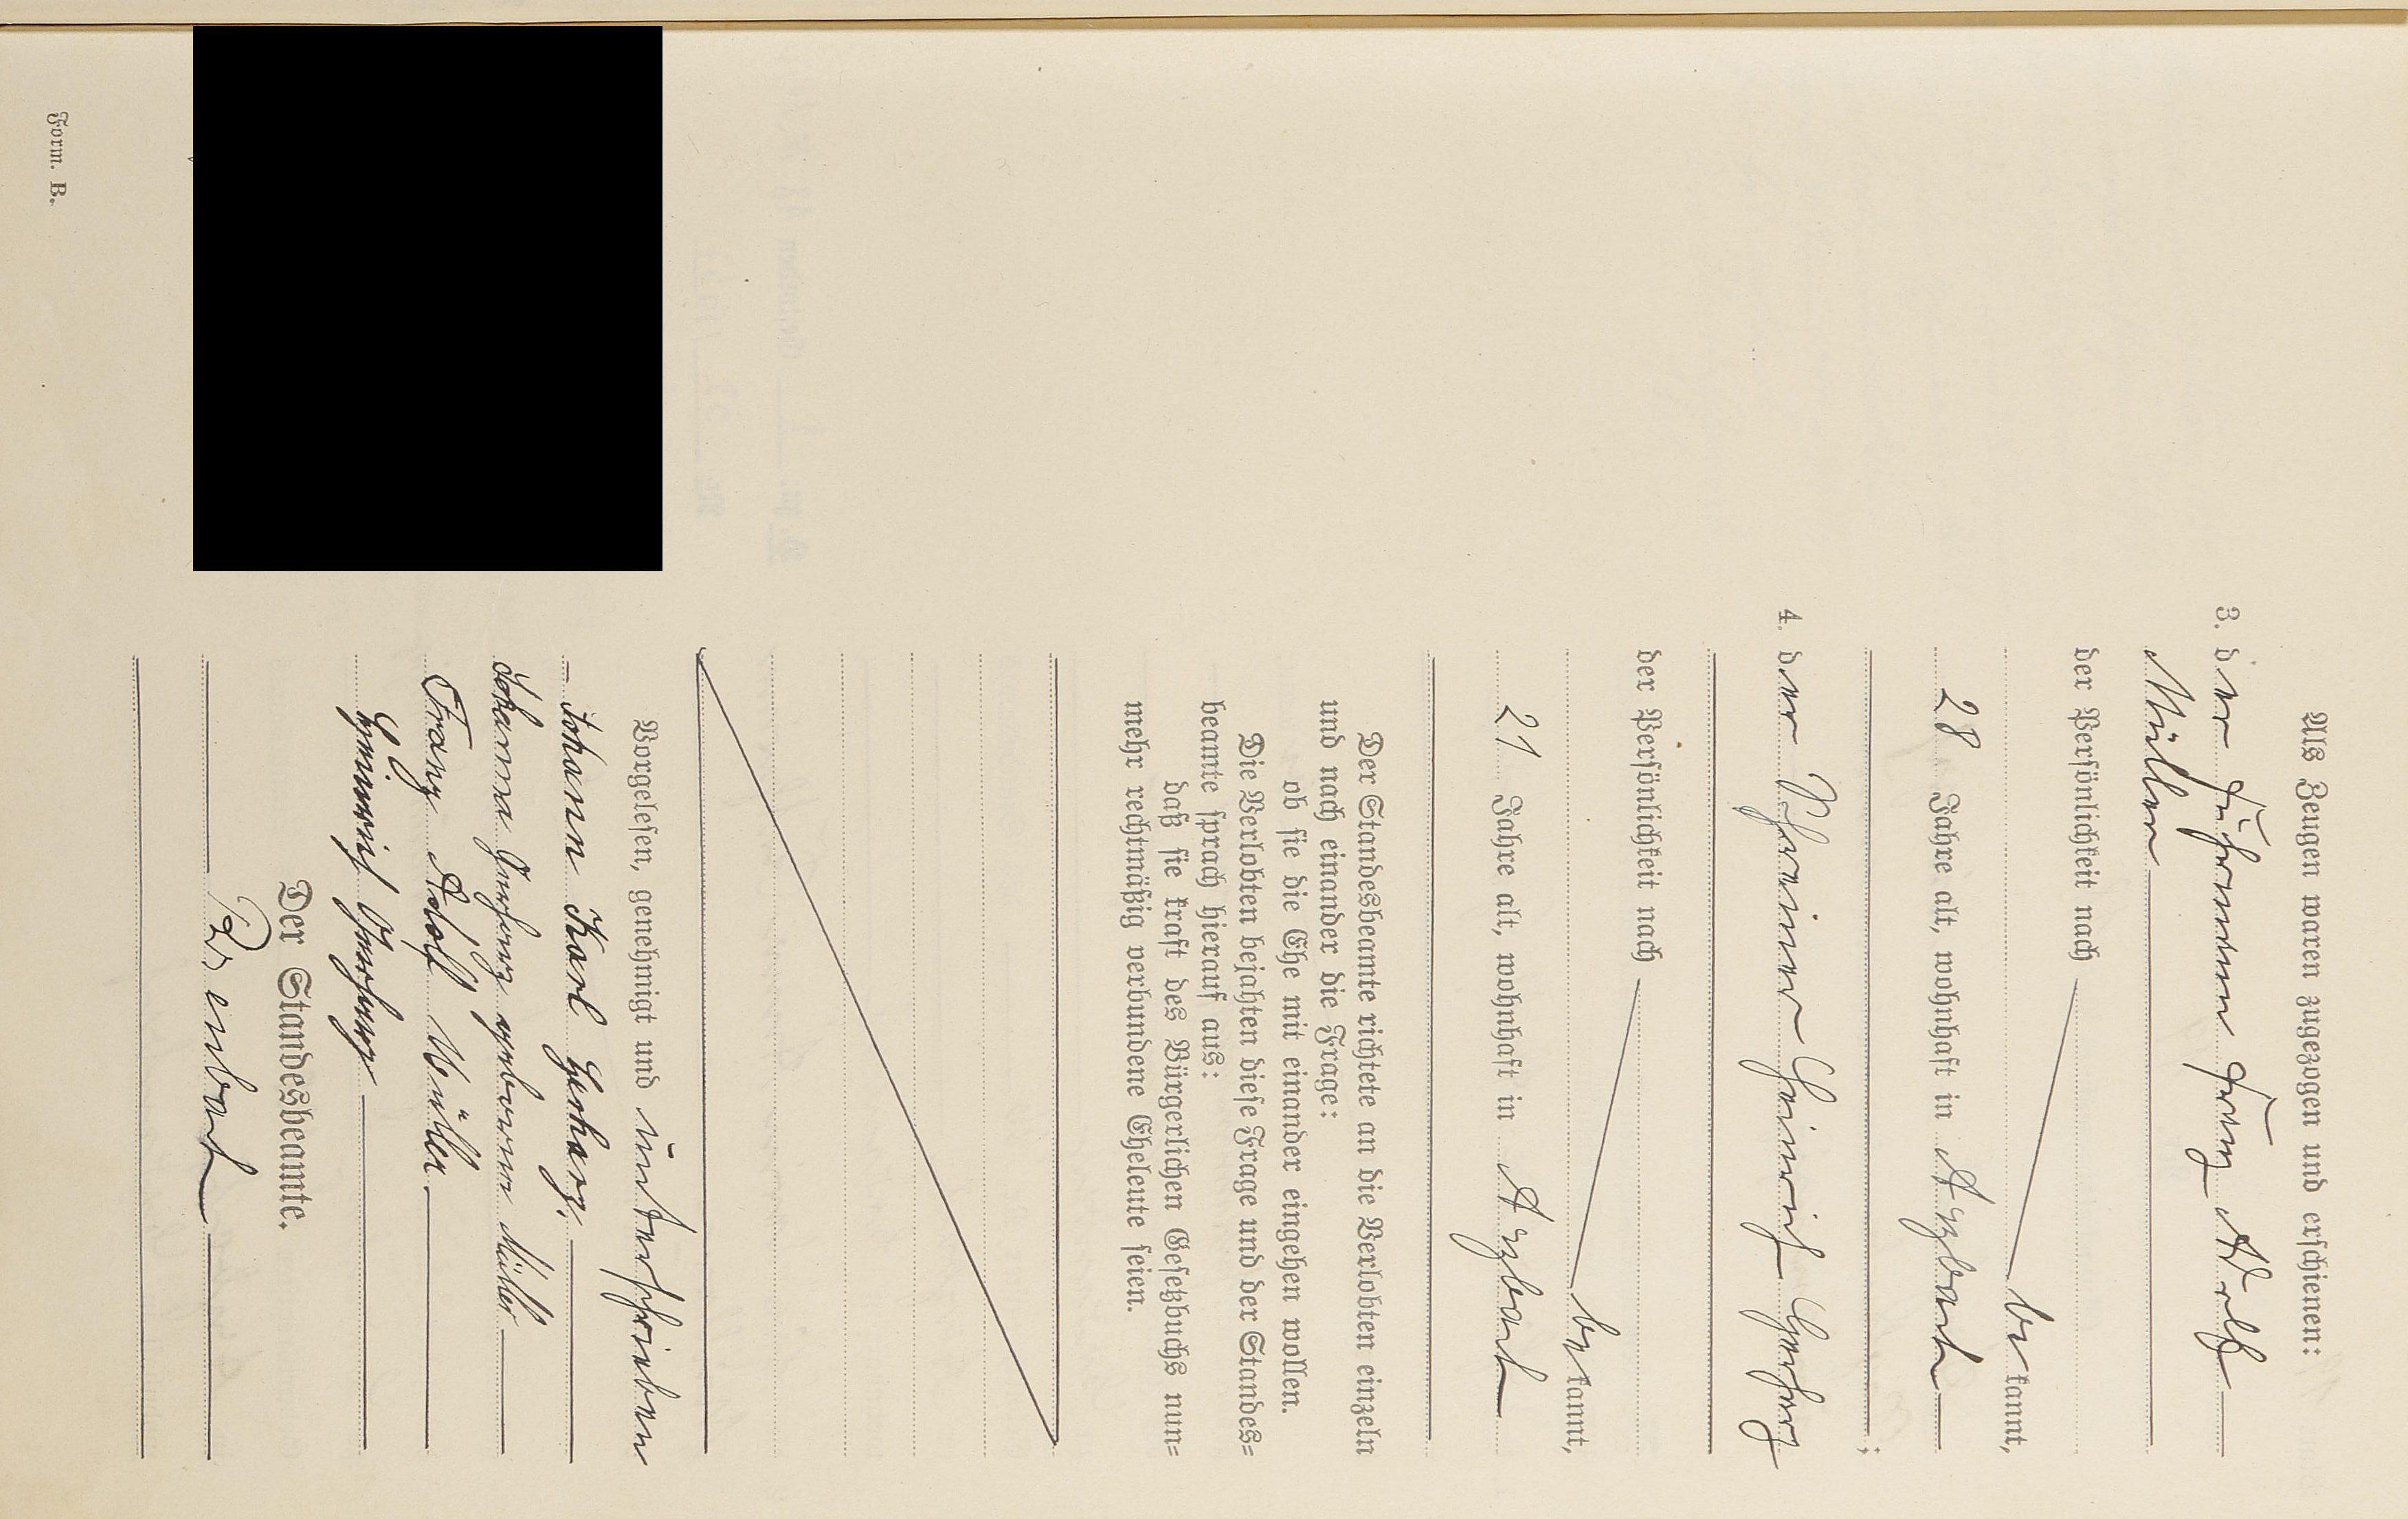 Als Zeugen waren zugezogen und erschienen:
3. der Fuhrmann Franz Adolf
Müller
der Persönlichkeit nach
be kannt,
28 Jahre alt, wohnhaft in Arzbach
;
4. der Schreiner Heinrich Gerharz
der Persönlichkeit nach
be kannt,
21 Jahre alt, wohnhaft in Arzbach
Der Standesbeamte richtete an die Verlobten einzeln
und nach einander die Frage:
ob sie die Ehe mit einander eingehen wollen.
Die Verlobten bejahten diese Frage und der Standes=
beamte sprach hierauf aus:
daß sie kraft des Bürgerlichen Gesetzbuchs nun=
mehr rechtmäßig verbundene Eheleute seien.
Vorgelesen, genehmigt und unterschrieben
Johann Karl Gerharz.
Johanna Gerharz geborene Müller
Franz Adolf Müller
Heinrich Gerharz
Der Standesbeamte.
Form. B.